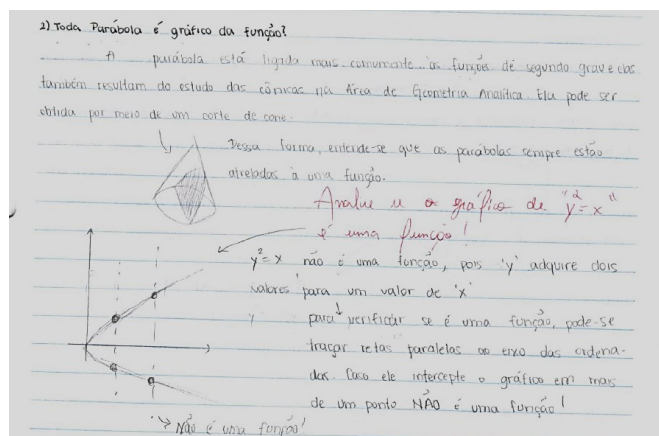 2) Toda Parábola é gráfico da função?
A parábola está ligada mais comumente as funções de segundo grau e elas
também resultam do estudo das cônicas na Área de Geometria Analítica. Ela pode ser
obtida por meio de um corte de cone.
Dessa forma, entende-se que as parábolas sempre estão
atreladas à uma função.
Analise se o gráfico de "y²=x"
é uma função!
y²=x não é uma função, pois 'y' adquire dois
valores para um valor de 'x'
para verificar se é uma função, pode-se
traçar retas paralelas ao eixo das ordena-
das. Caso ele intercepte o gráfico em mais
de um ponto NÃO é uma função!
Não é uma função!